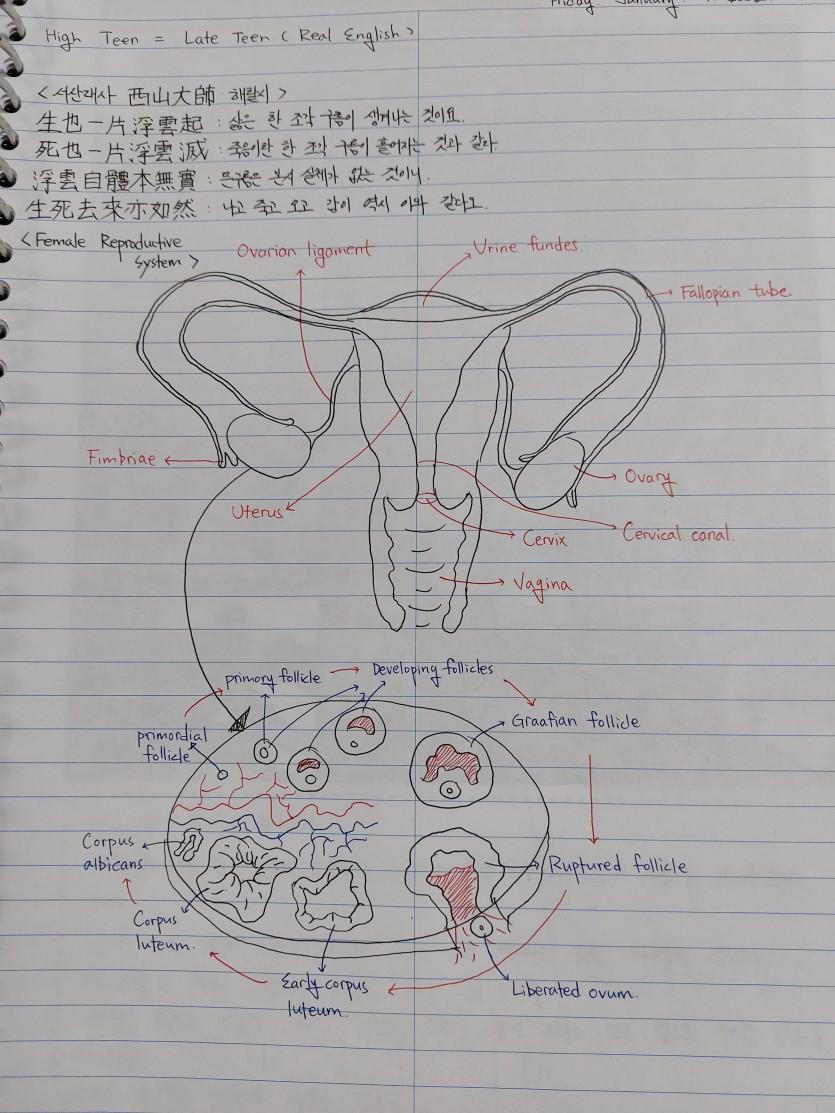 Friday. January.
High Teen = Late Teen ( Real English )
<서산대사 西山大師 해탈시>
生也一片浮雲起 : 삶은 한 조각 구름이 생겨나는 것이요.
死也一片浮雲滅 : 죽음이란 한 조각 구름이 흩어지는 것과 같다.
浮雲自體本無實 : 뜬구름은 본시 실체가 없는 것이니.
生死去來亦如然 : 나고 죽고 오고 감이 역시 이와 같다오.
<Female Reproductive
System>
Ovarian ligament
Urine fundes.
Fallopian tube.
Fimbriae
Ovary
Uterus
Cervix
Cervical canal.
Vagina
primory follicle
Developing follicles
primordial
follicle
Graafian follicle
Corpus
albicans
Ruptured follicle
Corpus
luteum.
Early corpus
luteum.
Liberated ovum.